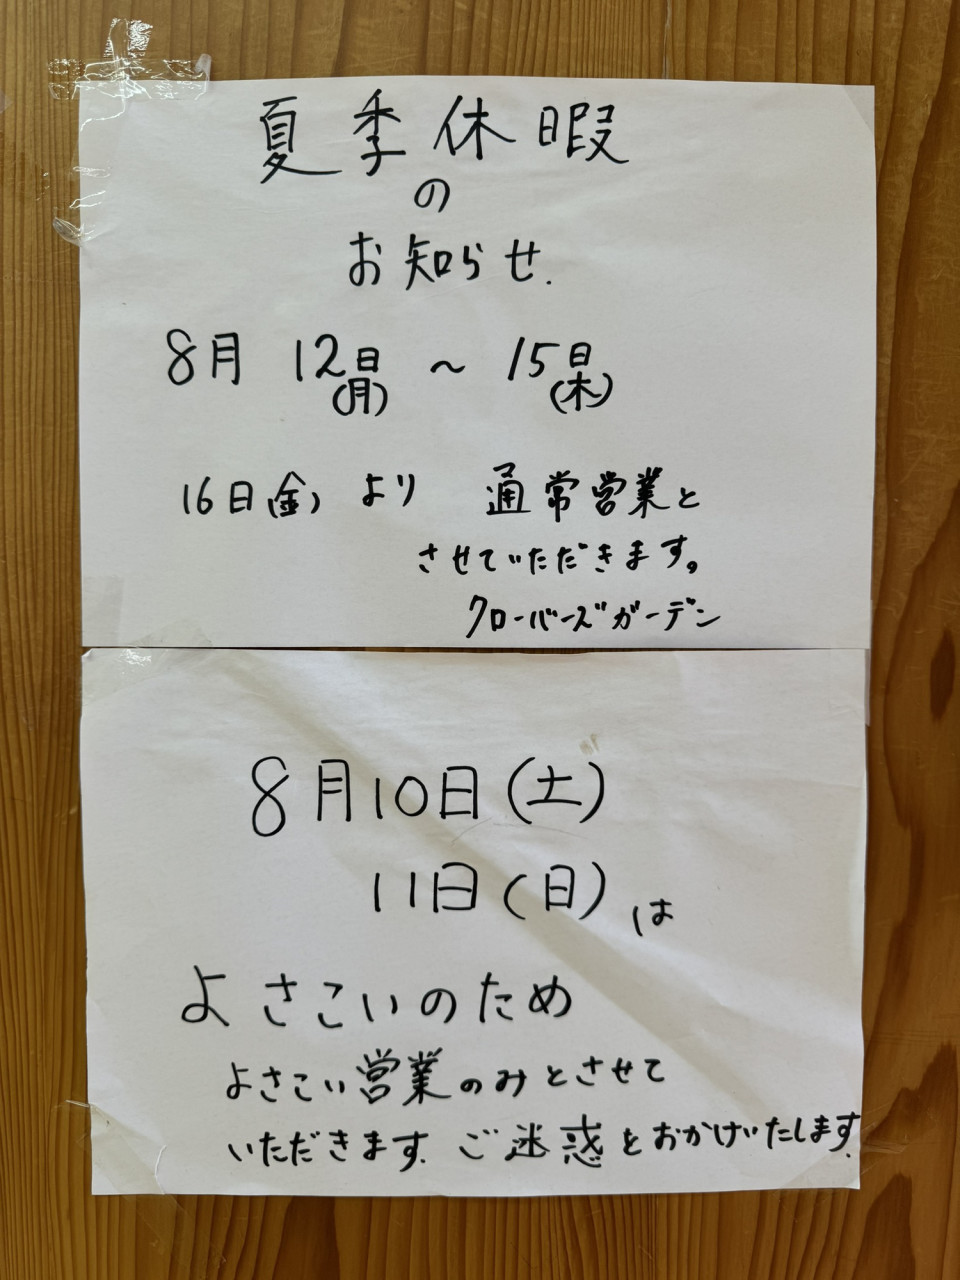 夏季休暇
の
お知らせ.
8月 12日(月) ～ 15日(木)
16日(金)より 通常営業と
させていただきます。
クローバーズガーデン
8月10日(土)
11日(日)は
よさこいのため
よさこい営業のみとさせて
いただきます. ご迷惑とおかけいたします.